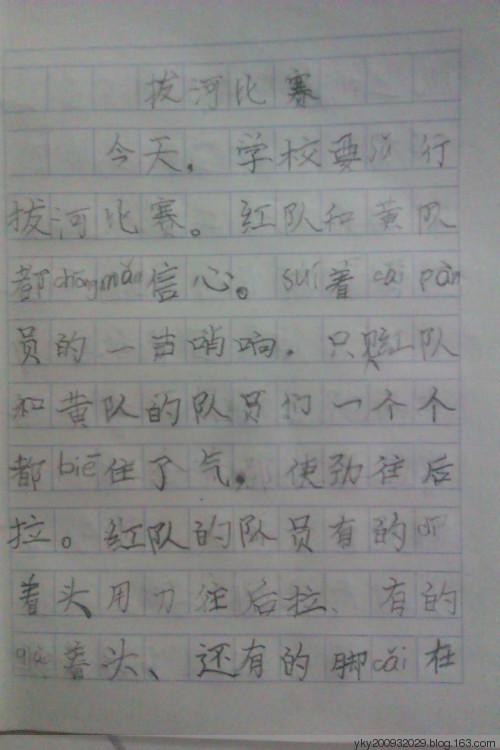 拔河比赛
今天，学校要 行
拔河比赛。红队和黄队
都chōngmǎn信心。suí着cái pàn
员的一声哨响，只见红队
和黄队的队员们一个个
都biē住了气，使劲往后
拉。红队的队员有的
着头用力往后拉、有的
着头、还有的脚cǎi在
yky200932029.blog.163.com